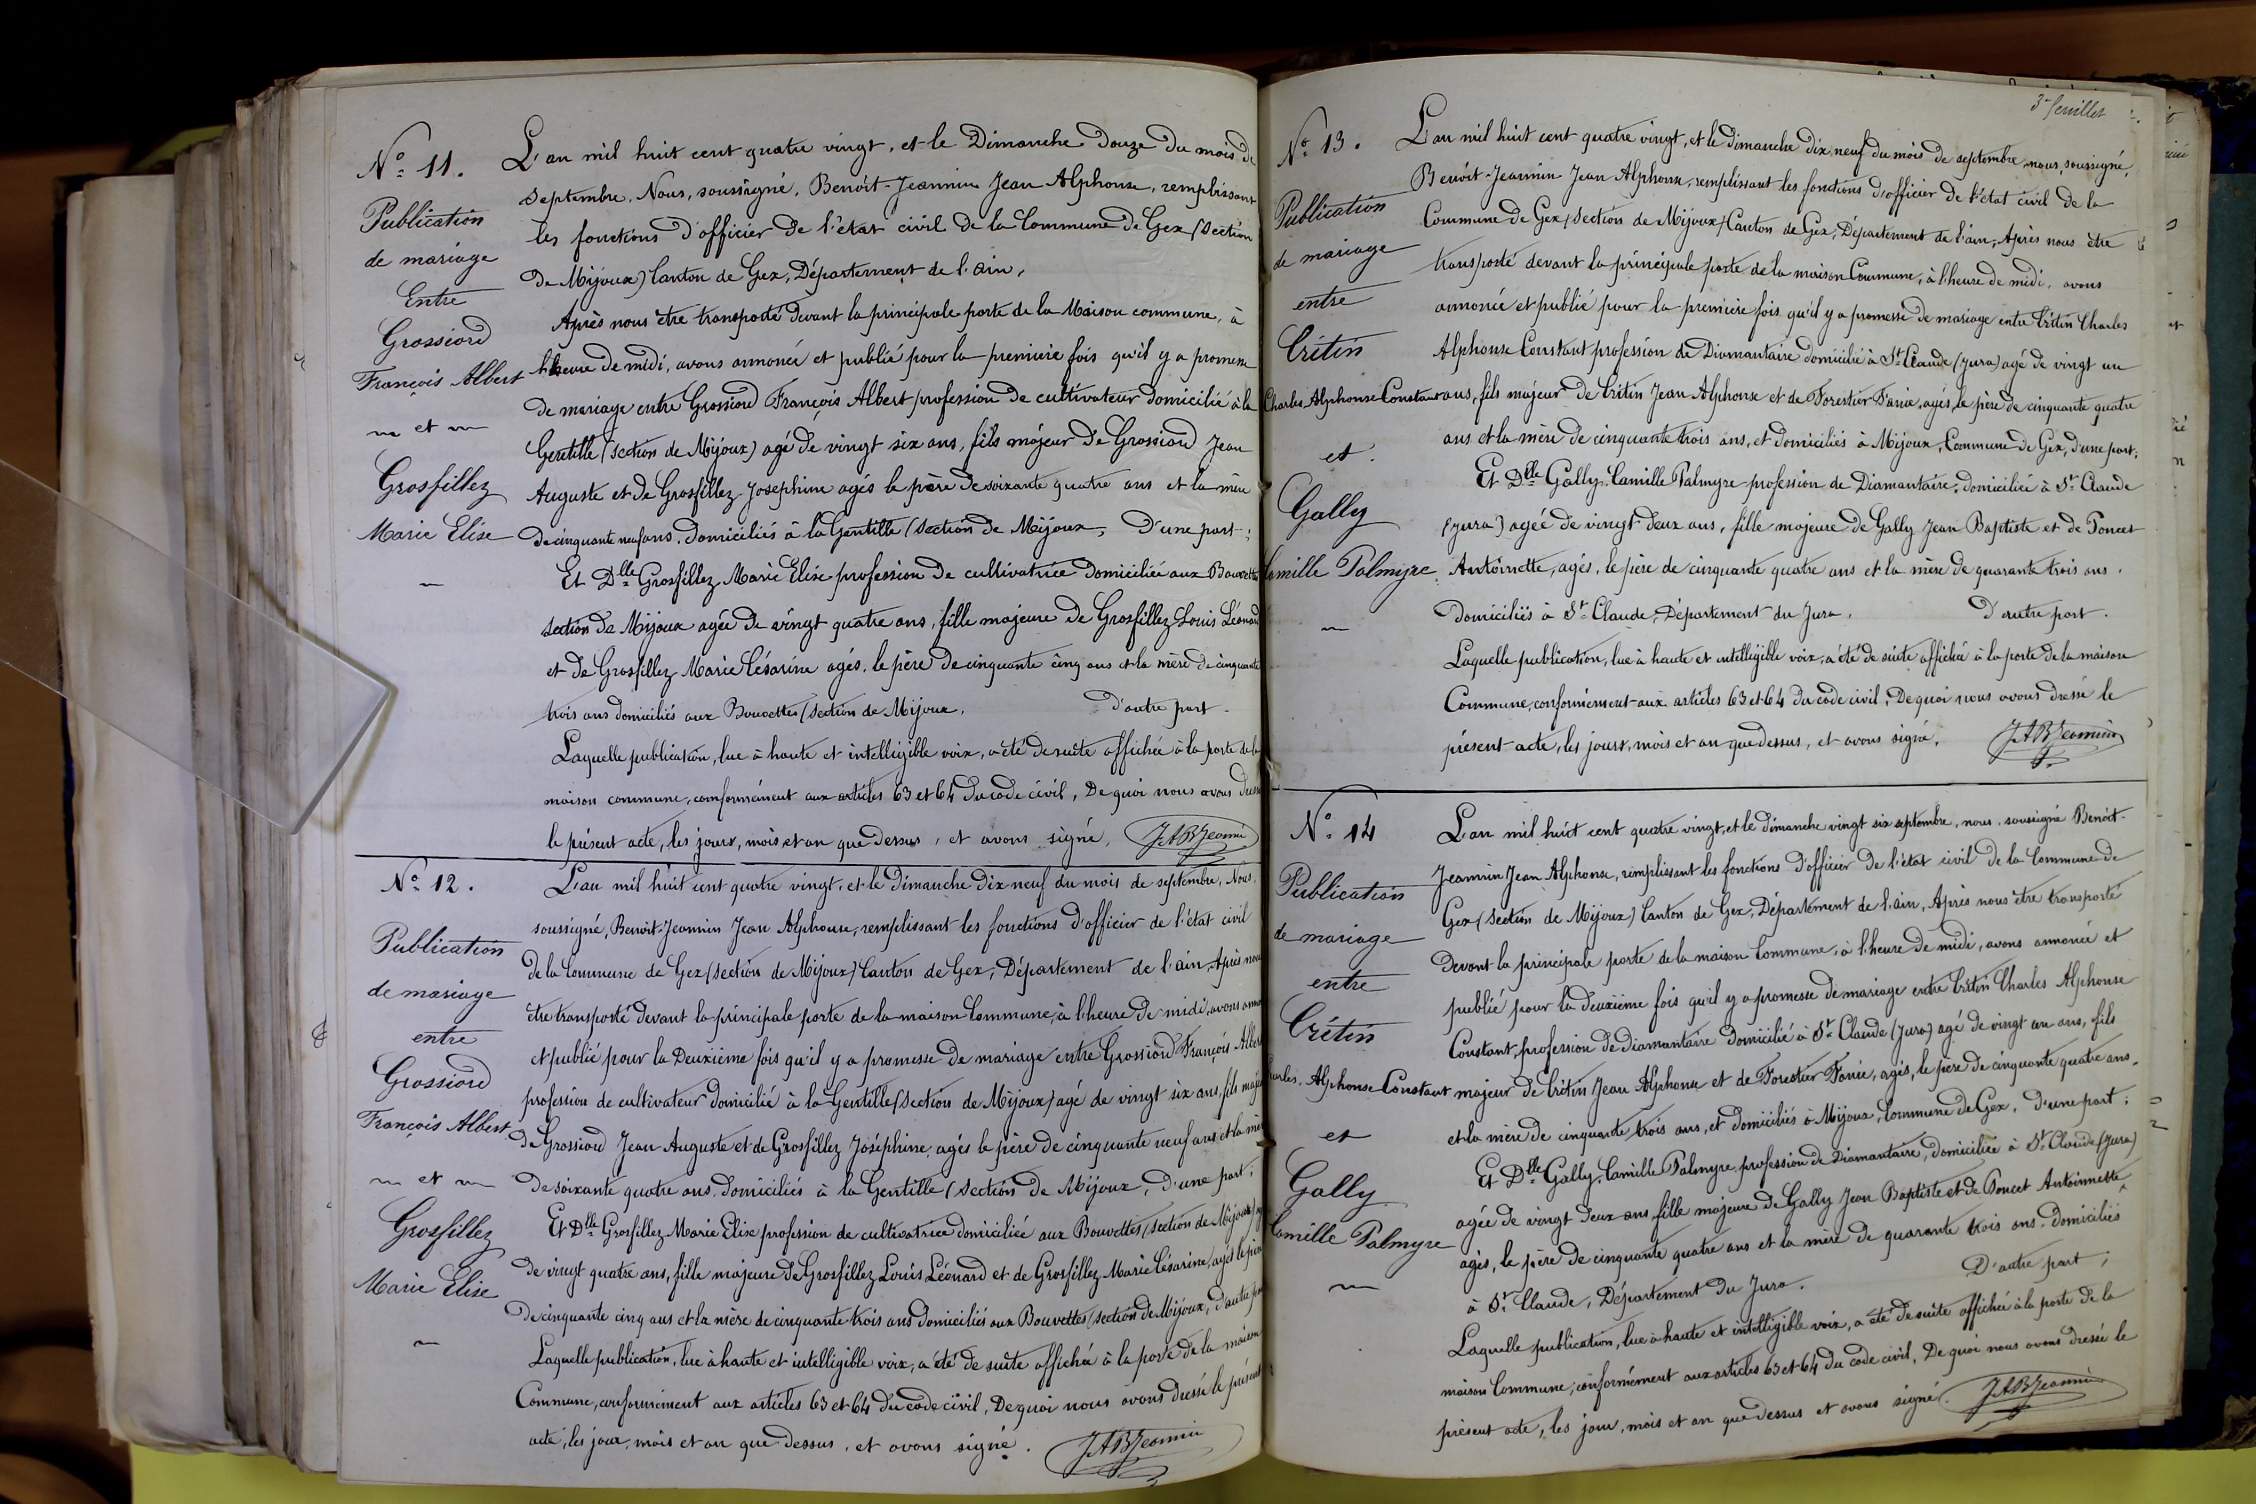 Nº 11.
Publication
de mariage
Entre
Grossiord
François Albert
et
Grosfillez
Marie Elise
L'an mil huit cent quatre vingt, et le Dimanche douze du mois de
septembre. Nous, soussigné, Benoît-Jeannin Jean Alphonse, remplissant
les fonctions d'officier de l'état civil de la Commune de Gex (section
de Mijoux) Canton de Gex, Département de l'ain,
Après nous être transporté devant la principale porte de la Maison commune, à
l'heure de midi, avons annoncé et publié pour la première fois qu'il y a promesse
de mariage entre Grossiord François Albert profession de cultivateur domicilié à la
Gentille (section de Mijoux) agé de vingt six ans, fils majeur de Grossiord Jean
Auguste et de Grosfillez Josephine agés le père de soixante quatre ans et la mère
de cinquante neuf ans. domiciliés à la Gentille (section de Mijoux, D'une part;
Et Dlle Grosfillez Marie Elise profession de cultivatrice domiciliée aux Bouvettes
section de Mijoux agée de vingt quatre ans, fille majeure de Grosfillez Louis Léonard
et de Grosfillez Marie Césarine agés, le père de cinquante cinq ans et la mère de cinquante
trois ans domiciliés aux Bouvettes (section de Mijoux, D'autre part.
Laquelle publication, lue à haute et intelligible voix, a été de suite affichée à la porte de la
maison commune, conformément aux articles 63 et 64 du code civil, De quoi nous avons dressé
le présent acte, les jours, mois et an que dessus, et avons signé, JABJeannin
Nº 12.
Publication
de mariage
entre
Grossiord
François Albert
et
Grosfillez
Marie Elise
L'an mil huit cent quatre vingt, et le dimanche dix neuf du mois de septembre, Nous,
soussigné, Benoit-Jeannin Jean Alphonse, remplissant les fonctions d'officier de l'état civil
de la Commune de Gex (section de Mijoux) Canton de Gex, Département de l'ain, Après nous
être transporté devant la principale porte de la maison Commune, à l'heure de midi, avons
et publié pour la Deuxième fois qu'il y a promesse de mariage entre Grossiord François Albert
profession de cultivateur domicilié à la Gentille (section de Mijoux) agé de vingt six ans, fils majeur
de Grossiord Jean Auguste et de Grosfillez Joséphine, agés le père de cinquante neuf ans et la mère
de soixante quatre ans, domiciliés à la Gentille (section de Mijoux, d'une part;
Et Dlle Grosfillez Marie Elise profession de cultivatrice domiciliée aux Bouvettes (section de Mijoux)
de vingt quatre ans, fille majeure de Grosfillez Louis Léonard et de Grosfillez Marie Césarine, agés le père
de cinquante cinq ans et la mère de cinquante trois ans domiciliés aux Bouvettes (section de Mijoux, d'autre part
Laquelle publication, lue à haute et intelligible voix, a été de suite affichée à la porte de la maison
Commune, conformément aux articles 63 et 64 du code civil, De quoi nous avons dressé le présent
acte, les jour, mois et an que dessus, et avons signé. JABJeannin
3e feuillet
Nº 13.
Publication
de mariage
entre
Crétin
Charles Alphonse Constant
et
Gally
Camille Palmyre
L'an mil huit cent quatre vingt, et le dimanche dix neuf du mois de septembre nous, soussigné,
Benoît-Jeannin Jean Alphonse, remplissant les fonctions d'officier de l'état civil de la
Commune de Gex (section de Mijoux) Canton de Gex, Département de l'ain, Après nous être
transporté devant la principale porte de la maison Commune, à l'heure de midi, avons
annoncé et publié pour la première fois qu'il y a promesse de mariage entre Crétin Charles
Alphonse Constant profession de Diamantaire domicilié à St Claude (Jura) agé de vingt un
ans, fils majeur de Crétin Jean Alphonse et de Forestier Fanie, agés, le père de cinquante quatre
ans et la mère de cinquante trois ans, et domiciliés à Mijoux, Commune de Gex, d'une part;
Et Dlle Gally Camille Palmyre profession de Diamantaire, domiciliée à St Claude
(Jura) agée de vingt deux ans, fille majeure de Gally Jean Baptiste et de Poncet
Antoinette, agés, le père de cinquante quatre ans et la mère de quarante trois ans.
Domiciliés à St Claude, Département du Jura, D'autre part.
Laquelle publication, lue à haute et intelligible voix, a été de suite affichée à la porte de la maison
Commune, conformément aux articles 63 et 64 du code civil, De quoi nous avons dressé le
présent acte, les jours, mois et an que dessus, et avons signé. JABJeannin
Nº 14
Publication
de mariage
entre
Crétin
Charles, Alphonse Constant
et
Gally
Camille Palmyre
L'an mil huit cent quatre vingt, et le dimanche vingt six septembre, nous, soussigné Benoit-
Jeannin Jean Alphonse, remplissant les fonctions d'officier de l'état civil de la Commune de
Gex (section de Mijoux) Canton de Gex, Département de l'ain, Après nous être transporté
devant la principale porte de la maison Commune, à l'heure de midi, avons annoncé et
publié pour la deuxième fois qu'il y a promesse de mariage entre Crétin Charles Alphonse
Constant, profession de diamantaire domicilié à St Claude (Jura) agé de vingt un ans, fils
majeur de Crétin Jean Alphonse et de Forestier Fanie, agés, le père de cinquante quatre ans,
et la mère de cinquante trois ans, et domiciliés à Mijoux, Commune de Gex, d'une part;
Et Dlle Gally Camille Palmyre profession de Diamantaire, domiciliée à St Claude (Jura)
agée de vingt deux ans, fille majeure de Gally Jean Baptiste et de Poncet Antoinette,
agés, le père de cinquante quatre ans et la mère de quarante trois ans. domiciliés
à St Claude, Département du Jura. D'autre part;
Laquelle publication, lue à haute et intelligible voix, a été de suite affichée à la porte de la
maison Commune, conformément aux articles 63 et 64 du code civil, De quoi nous avons dressée le
présent acte, les jour, mois et an que dessus et avons signé. JABJeannin